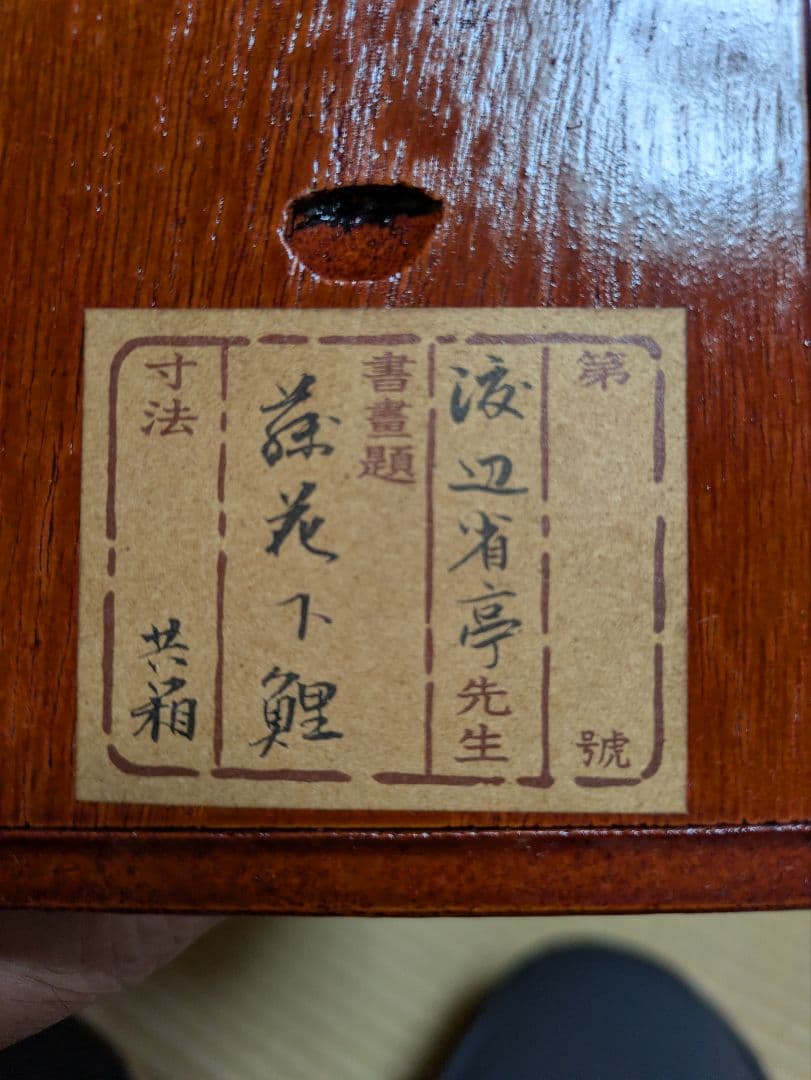 第 號
渡辺省亭先生
書畫題
藤花下鯉
寸法 共箱